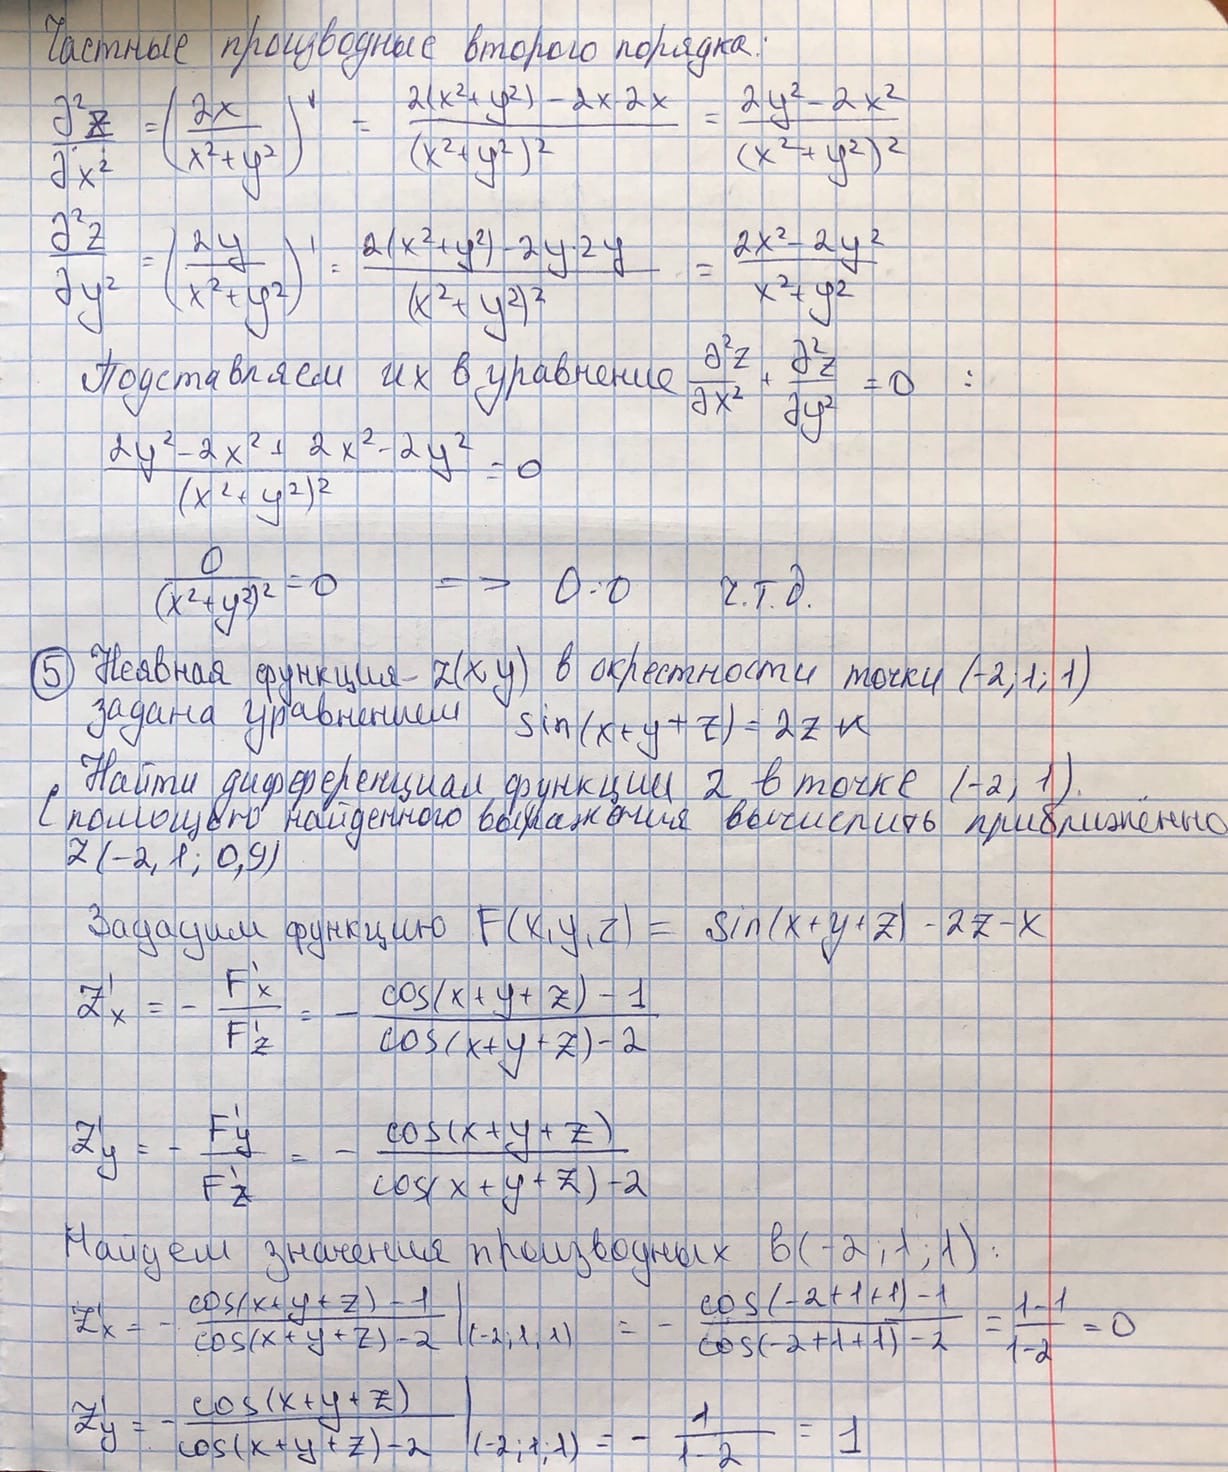 Частные производные второго порядка:
∂²z/∂x² = (2x/(x²+y²))' = (2(x²+y²) - 2x·2x)/(x²+y²)² = (2y² - 2x²)/(x²+y²)²
∂²z/∂y² = (2y/(x²+y²))' = (2(x²+y²) - 2y·2y)/(x²+y²)² = (2x² - 2y²)/(x²+y²)
Подставляем их в уравнение ∂²z/∂x² + ∂²z/∂y² = 0 :
(2y² - 2x² + 2x² - 2y²)/(x²+y²)² = 0
0/(x²+y²)² = 0 => 0=0 ч.т.д.
⑤ Неявная функция z(x,y) в окрестности точки (-2;1;1)
задана уравнением sin(x+y+z) = 2z+x
Найти диференциал функции z в точке (-2;1).
С помощью найденного выражения вычислить приближенно
z(-2,1; 0,9)
Зададим функцию F(x,y,z) = sin(x+y+z) - 2z - x
z'x = - F'x/F'z = - (cos(x+y+z) - 1)/(cos(x+y+z) - 2)
z'y = - F'y/F'z = - cos(x+y+z)/(cos(x+y+z) - 2)
Найдем значения производных в (-2;1;1):
z'x = - (cos(x+y+z) - 1)/(cos(x+y+z) - 2) |(-2;1;1) = - (cos(-2+1+1) - 1)/(cos(-2+1+1) - 2) = (1-1)/(1-2) = 0
z'y = - cos(x+y+z)/(cos(x+y+z) - 2) |(-2;1;1) = - 1/(1-2) = 1